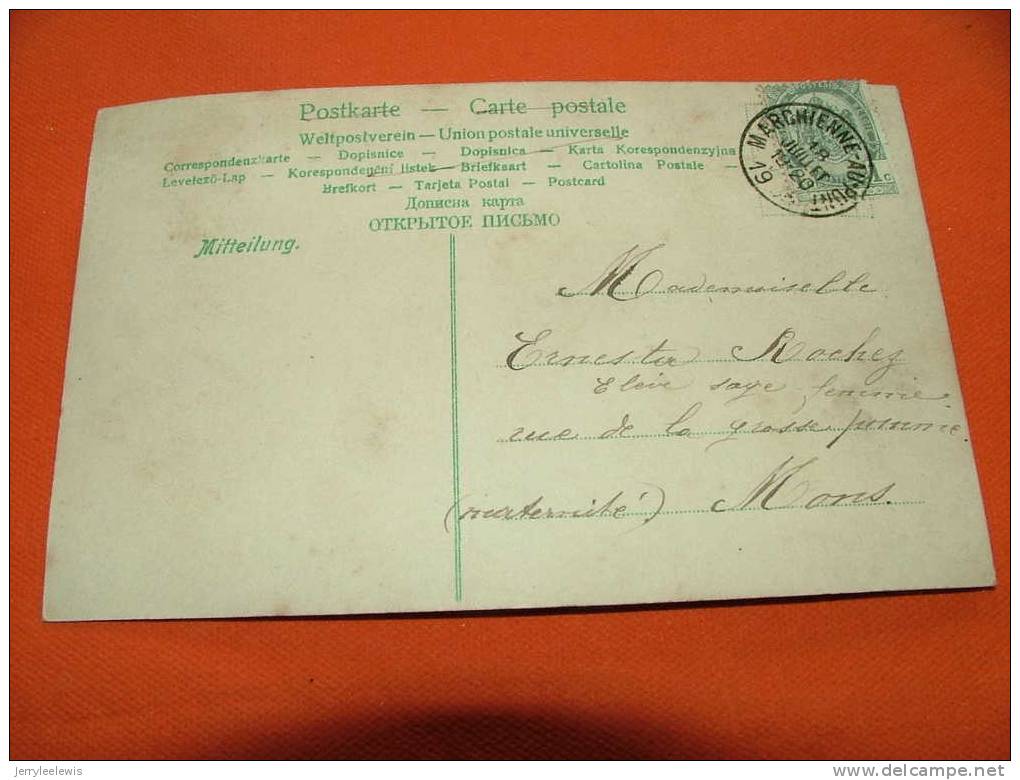 Postkarte — Carte postale
Weltpostverein — Union postale universelle
Correspondenzkarte — Dopisnice — Dopisnica — Karta Korespondenzyjna
Levelező-Lap — Korespondenční listek — Briefkaart — Cartolina Postale —
Brefkort — Tarjeta Postal — Postcard
Дописна карта
ОТКРЫТОЕ ПИСЬМО
MARCHIENNE-AU-PONT
18
JUILLET
19
Mitteilung.
Mademoiselle
Ernesta Rochez
Elève sage femme
rue de la grosse pomme.
(maternité) Mons.
jerryleelewis
delcampe.net